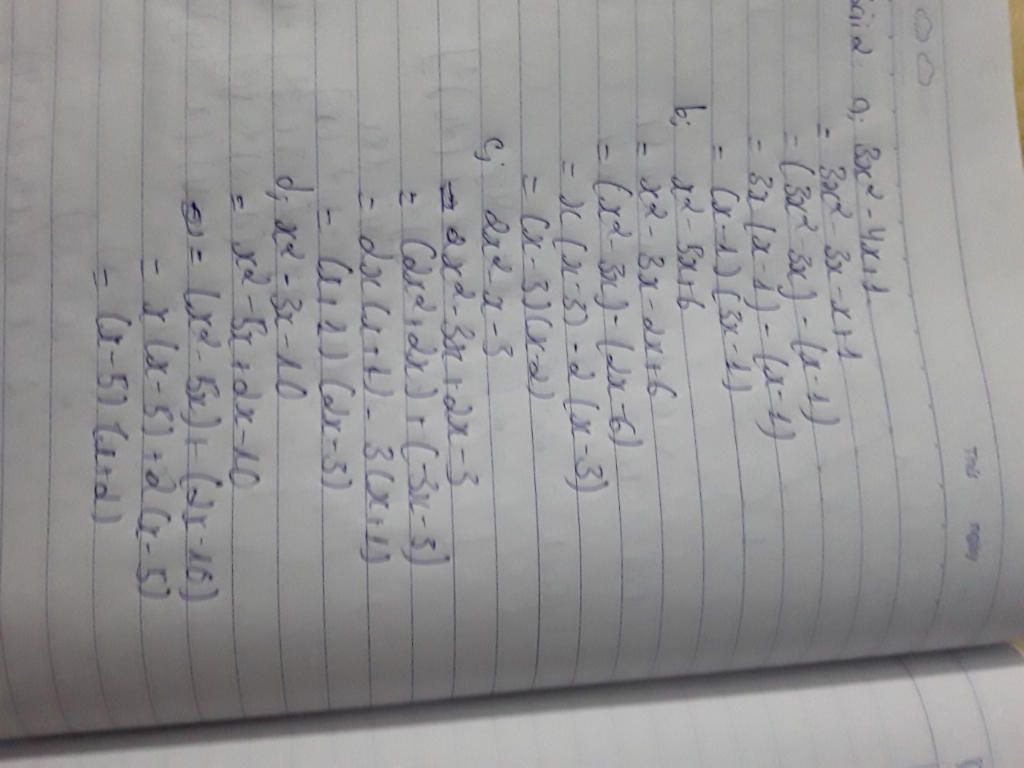 Thứ ngày
Bài 2 a; 3x² - 4x+1
= 3x² - 3x - x+1
= (3x² - 3x) - (x-1)
= 3x (x-1) - (x-1)
= (x-1) (3x-1)
b; x² - 3x+6
= x² - 3x - 2x+6
= (x² - 3x) - (2x-6)
= x (x-3) - 2 (x-3)
= (x-3) (x-2)
c; 2x² - x - 3
= 2x² - 3x + 2x - 3
= (2x² + 2x) + (-3x-3)
= 2x (x+1) - 3 (x+1)
= (x+1) (2x-3)
d; x² - 3x - 10
= x² - 5x + 2x - 10
= (x² - 5x) + (2x-10)
= x (x-5) + 2 (x-5)
= (x-5) (x+2)